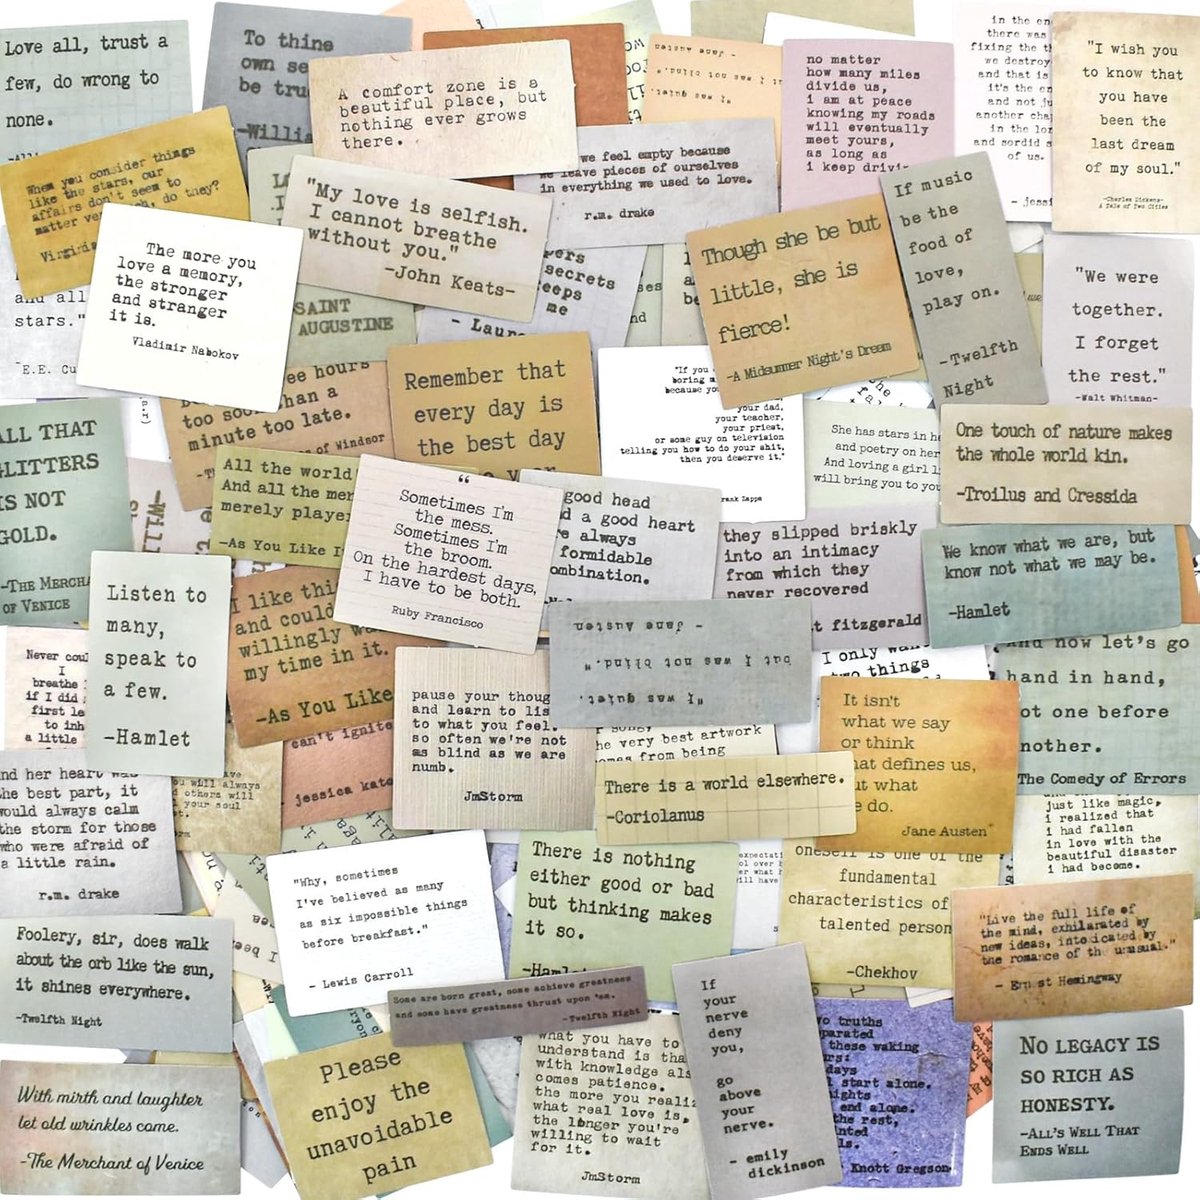 Love all, trust a
few, do wrong to
none.
To thine
own se
be tru
-Willia
A comfort zone is a
beautiful place, but
nothing ever grows
there.
- Jane Austen
but I was not blind."
"I was quiet.
no matter
how many miles
divide us,
i am at peace
knowing my roads
will eventually
meet yours,
as long as
i keep drivin
in the en
there was
fixing the t
we destroy
and that is
it's the en
and not ju
another cha
in the lor
and sordid s
of us.
- jessi
"I wish you
to know that
you have
been the
last dream
of my soul."
-Charles Dickens-
A Tale of Two Cities
When you consider things
like the stars, our
affairs don't seem to
matter ver ch, do they?
Virginia
we feel empty because
we leave pieces of ourselves
in everything we used to love.
r.m. drake
"My love is selfish.
I cannot breathe
without you."
-John Keats-
If music
be the
food of
love,
play on.
-Twelfth
Night
Though she be but
little, she is
fierce!
-A Midsummer Night's Dream
and all
stars."
E.E. Cu
The more you
love a memory,
the stronger
and stranger
it is.
Vladimir Nabokov
SAINT
AUGUSTINE
pers
secrets
eeps
me
- Laur
"We were
together.
I forget
the rest."
-Walt Whitman-
ee hours
too soon than a
minute too late.
of Windsor
Remember that
every day is
the best day
"If you
boring m
because yo
your dad,
your teacher,
your priest,
or some guy on television
telling you how to do your shit,
then you deserve it."
rank Zappa
She has stars in he
and poetry on her
And loving a girl l
will bring you to you
One touch of nature makes
the whole world kin.
-Troilus and Cressida
ALL THAT
GLITTERS
IS NOT
GOLD.
-THE MERCHA
OF VENICE
All the world
And all the men
merely player
-As You Like I
"
Sometimes I'm
the mess.
Sometimes I'm
the broom.
On the hardest days,
I have to be both.
Ruby Francisco
good head
d a good heart
re always
formidable
ombination.
they slipped briskly
into an intimacy
from which they
never recovered
t fitzgerald
We know what we are, but
know not what we may be.
-Hamlet
Listen to
many,
speak to
a few.
-Hamlet
I like thi
and could
willingly wa
my time in it.
-As You Like
- Jane Austen
but I was not blind."
"I was quiet.
I only wan
two things
And now let's go
hand in hand,
not one before
nother.
The Comedy of Errors
Never coul
I
breathe
if I did
first le
to inh
a little
pause your thoug
and learn to lis
to what you feel.
so often we're not
as blind as we are
numb.
JmStorm
It isn't
what we say
or think
hat defines us,
ut what
e do.
Jane Austen
can't ignite
jessica kat
song,
he very best artwork
omes from being
There is a world elsewhere.
-Coriolanus
and her heart was
the best part, it
would always calm
the storm for those
who were afraid of
a little rain.
r.m. drake
ave
ou will always
d others will
your soul
just like magic,
i realized that
i had fallen
in love with the
beautiful disaster
i had become.
"Why, sometimes
I've believed as many
as six impossible things
before breakfast."
- Lewis Carroll
There is nothing
either good or bad
but thinking makes
it so.
-Hamlet
oneself is one of the
fundamental
characteristics of
talented person
-Chekhov
"Live the full life of
the mind, exhilarated by
new ideas, intoxicated by
the romance of the unusual."
- Ernest Hemingway
Foolery, sir, does walk
about the orb like the sun,
it shines everywhere.
-Twelfth Night
Some are born great, some achieve greatness
and some have greatness thrust upon 'em.
-Twelfth Night
If
your
nerve
deny
you,
go
above
your
nerve.
- emily
dickinson
With mirth and laughter
let old wrinkles come.
-The Merchant of Venice
Please
enjoy the
unavoidable
pain
what you have to
understand is tha
with knowledge als
comes patience.
the more you realiz
what real love is,
the longer you're
willing to wait
for it.
JmStorm
wo truths
parated
these waking
urs:
days
l start alone.
ights
end alone.
the rest,
nted
ls.
Knott Gregson
NO LEGACY IS
SO RICH AS
HONESTY.
-ALL'S WELL THAT
ENDS WELL